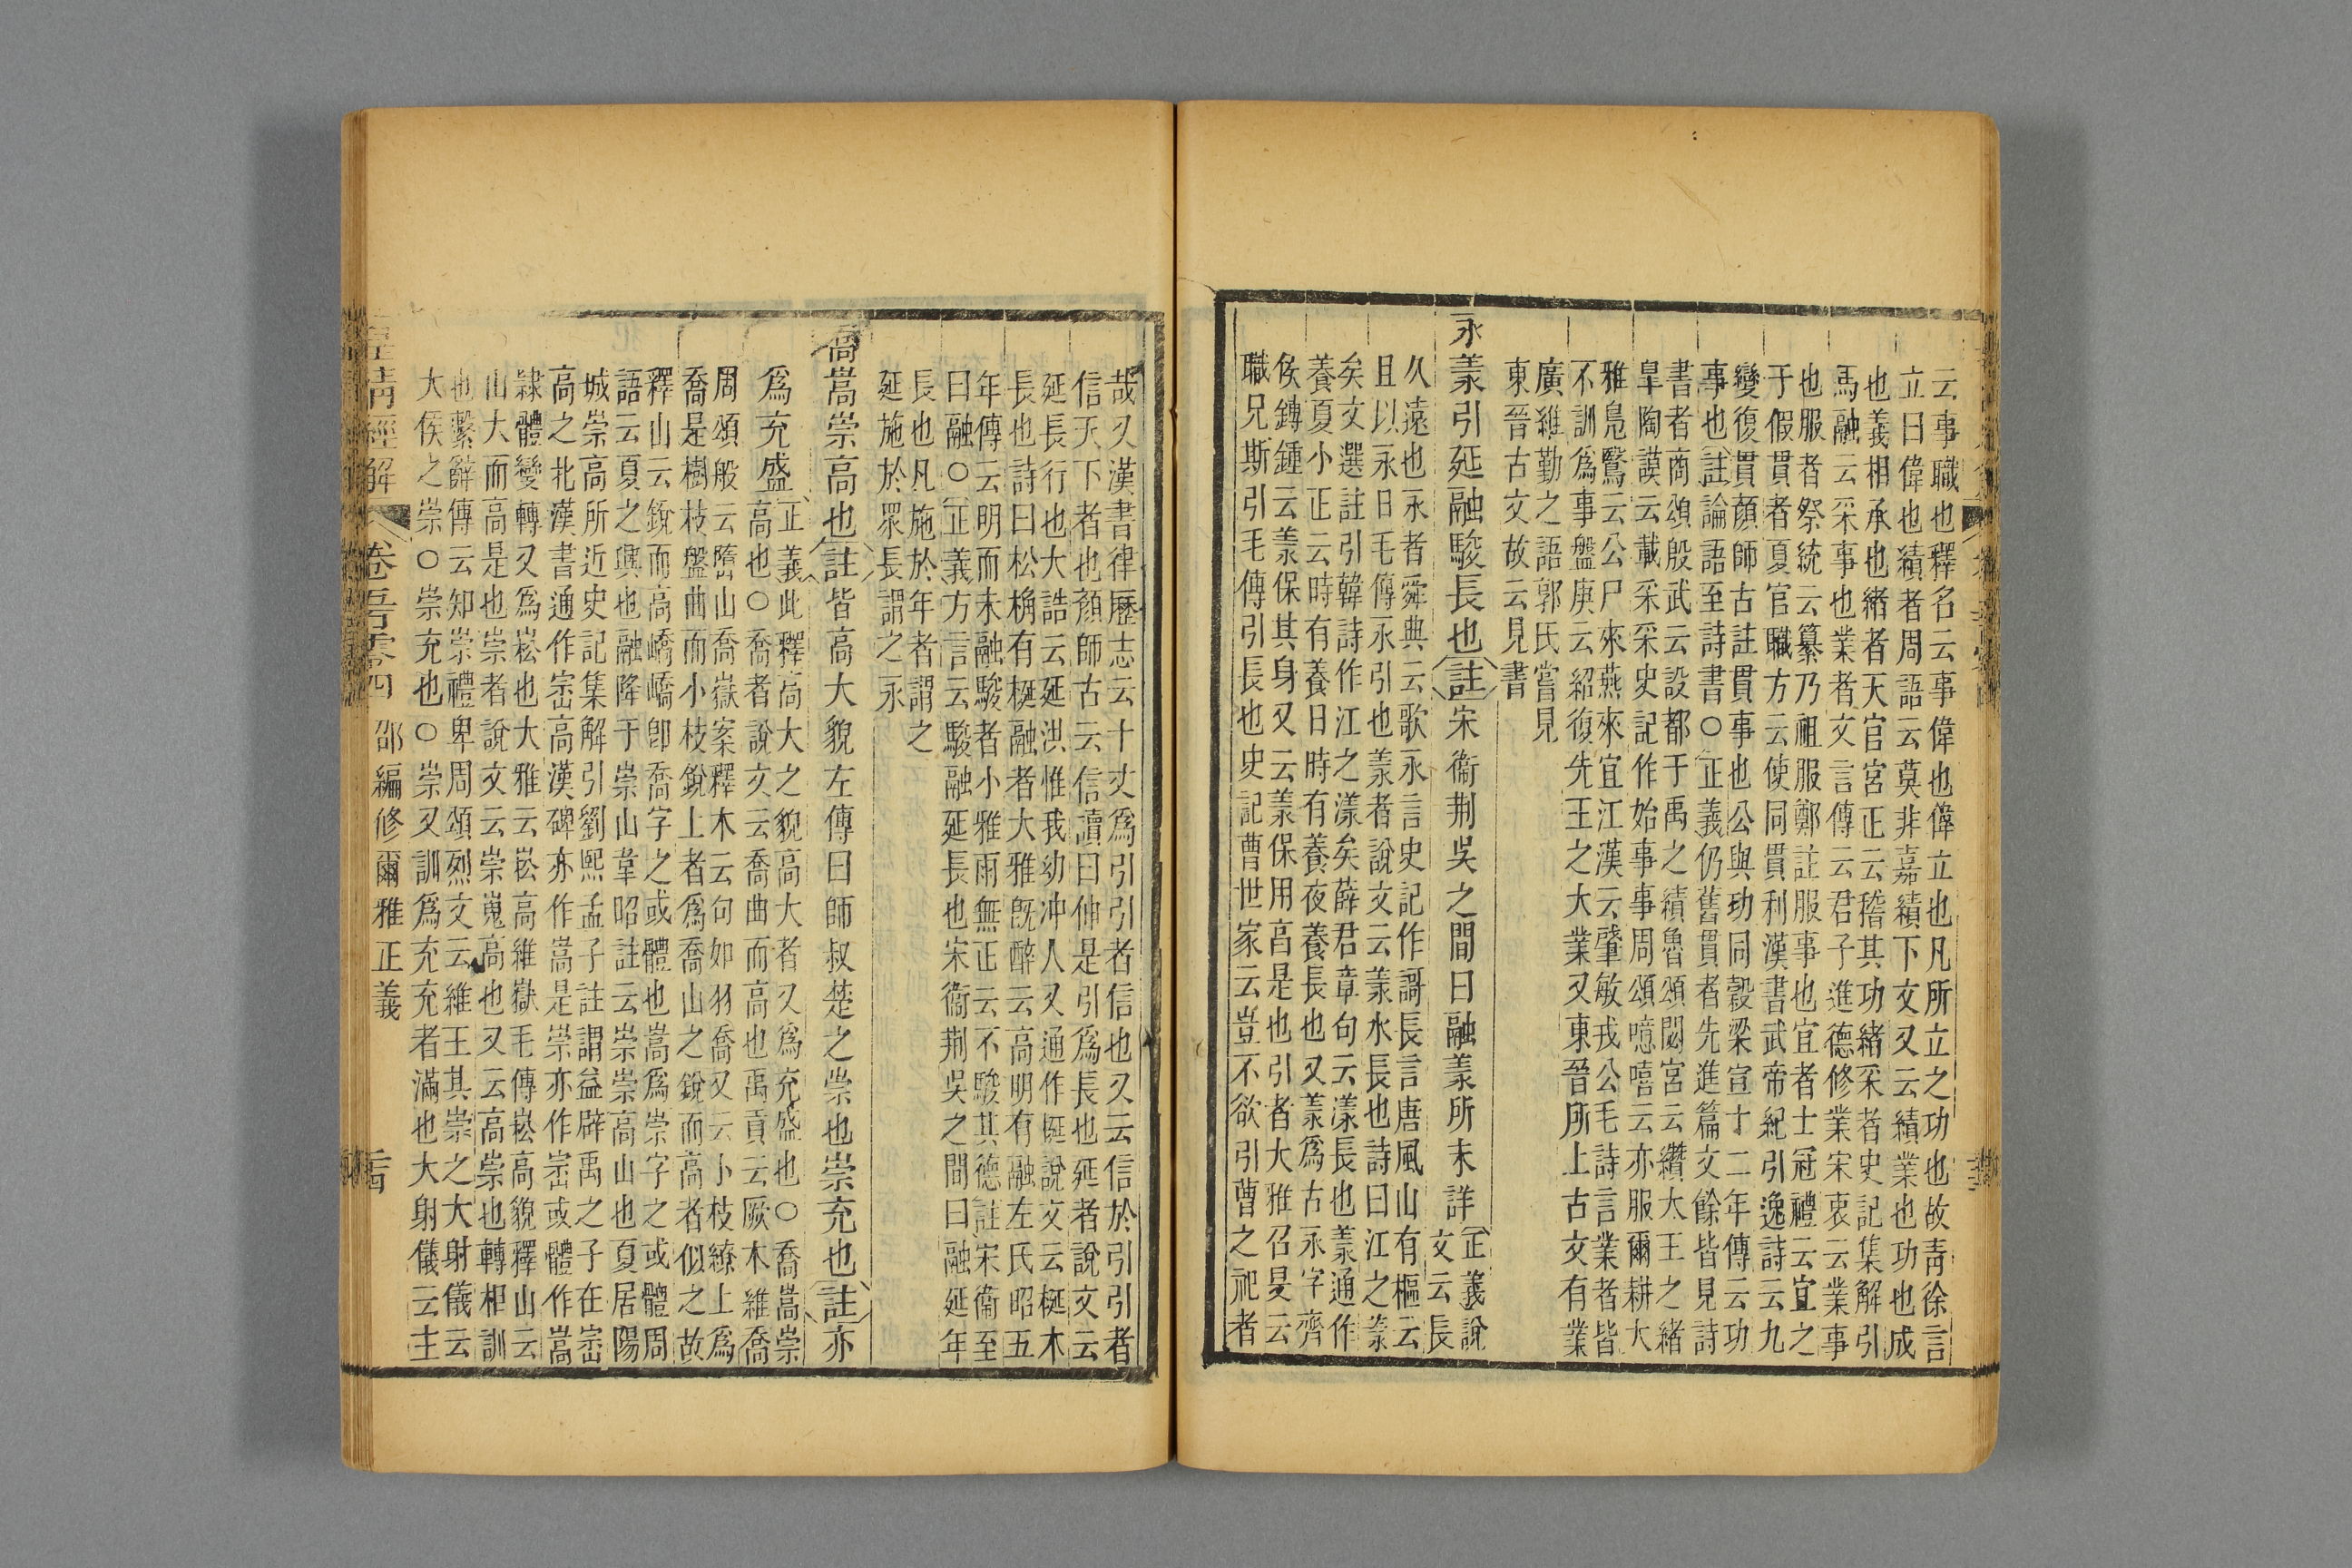 云事職也釋名云事偉也偉立也凡所立之功也故靑徐言
立曰偉也績者周語云莫非嘉績下文又云績業也功也成
也義相承也緖者天官宮正云稽其功緖采者史記集解引
馬融云采事也業者文言傳云君子進德修業宋衷云業事
也服者祭統云纂乃祖服鄭註服事也宜者士冠禮云宜之
于假貫者夏官職方云使同貫利漢書武帝紀引逸詩云九
變復貫顏師古註貫事也公與功同穀梁宣十二年傳云功
事也註論語至詩書○正義仍舊貫者先進篇文餘皆見詩
書者商頌殷武云設都于禹之績魯頌閟宮云纘大王之緖
臯陶謨云載采采史記作始事事周頌噫嘻云亦服爾耕大
雅鳧鷖云公尸來燕來宜江漢云肇敏戎公毛詩言業者皆
不訓爲事盤庚云紹復先王之大業又東晉所上古文有業
廣維勤之語郭氏嘗見
東晉古文故云見書
永羕引延融駿長也註宋衞荆吳之間曰融羕所未詳
正義說
文云長
久遠也永者舜典云歌永言史記作謌長言唐風山有樞云
且以永日毛傳永引也羕者說文云羕水長也詩曰江之羕
矣文選註引韓詩作江之漾矣薛君章句云漾長也羕通作
養夏小正云時有養日時有養夜養長也又羕爲古永字齊
侯鏄鍾云羕保其身又云羕保用亯是也引者大雅召旻云
職兄斯引毛傳引長也史記曹世家云豈不欲引曹之祀者
哉又漢書律歷志云十丈爲引引者信也又云信於引引者
信天下者也顏師古云信讀曰伸是引爲長也延者說文云
延長行也大誥云延洪惟我幼冲人又通作梴說文云梴木
長也詩曰松桷有梴融者大雅旣醉云高明有融左氏昭五
年傳云明而未融駿者小雅雨無正云不駿其德註宋衞至
曰融○正義方言云駿融延長也宋衞荆吳之間曰融延年
長也凡施於年者謂之
延施於眾長謂之永
喬嵩崇高也註皆高大貌左傳曰師叔楚之崇也崇充也註亦
爲充盛
正義此釋高大之貌高大者又爲充盛也○喬嵩崇
高也○喬者說文云喬曲而高也禹貢云厥木維喬
周頌般云墮山喬嶽案釋木云句如羽喬又云小枝繚上爲
喬是樹枝盤曲而小枝銳上者爲喬山之銳而高者似之故
釋山云銳而高嶠嶠卽喬字之或體也嵩爲崇字之或體周
語云夏之興也融降于崇山韋昭註云崇崇高山也夏居陽
城崇高所近史記集解引劉熙孟子註謂益辟禹之子在崈
高之北漢書通作崈高漢碑亦作嵩是崇亦作崈或體作嵩
隸體變轉又爲崧也大雅云崧高維嶽毛傳崧高貌釋山云
山大而高是也崇者說文云崇嵬高也又云高崇也轉相訓
也繫辭傳云知崇禮卑周頌烈文云維王其崇之大射儀云
大侯之崇○崇充也○崇又訓爲充充者滿也大射儀云主
皇淸經解
卷五百零四
邵編修爾雅正義